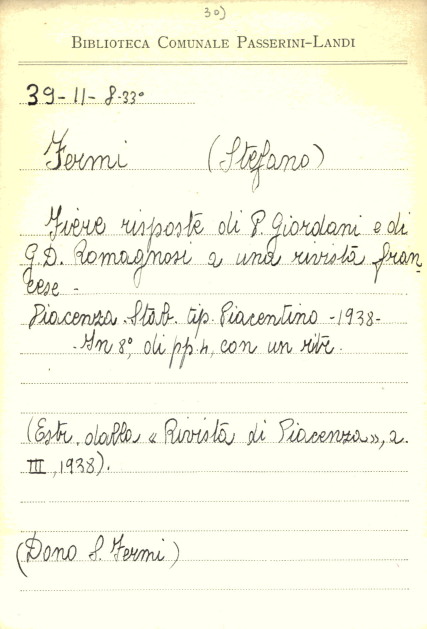 30)
BIBLIOTECA COMUNALE PASSERINI-LANDI
39-11-8.33º
Fermi (Stefano)
Fiere risposte di P. Giordani e di
G.D. Romagnosi a una rivista fran
cese -
Piacenza. Stab. tip. Piacentino - 1938 -
- In 8º, di pp. 4, con un ritr.
(Estr. dalla « Rivista di Piacenza», a.
III, 1938).
(Dono S. Fermi)